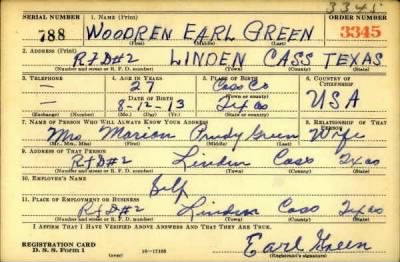 3345
SERIAL NUMBER 1. NAME (Print) ORDER NUMBER
788 WOODREN EARL GREEN 3345
(First) (Middle) (Last)
2. ADDRESS (Print)
RFD#2 LINDEN CASS TEXAS
(Number and street or R. F. D. number) (Town) (County) (State)
3. TELEPHONE 4. AGE IN YEARS 5. PLACE OF BIRTH 6. COUNTRY OF CITIZENSHIP
— 27 Cass Co
DATE OF BIRTH (Town or county)
— 8-12-13 Texas USA
(Exchange) (Number) (Mo.) (Day) (Yr.) (State or country)
7. NAME OF PERSON WHO WILL ALWAYS KNOW YOUR ADDRESS 8. RELATIONSHIP OF THAT PERSON
Mrs Marion Green Wife
(Mr., Mrs., Miss) (First) (Middle) (Last)
9. ADDRESS OF THAT PERSON
RFD#2 Linden Cass Texas
(Number and street or R. F. D. number) (Town) (County) (State)
10. EMPLOYER'S NAME
Self
11. PLACE OF EMPLOYMENT OR BUSINESS
RFD#2 Linden Cass Texas
(Number and street or R. F. D. number) (Town) (County) (State)
I AFFIRM THAT I HAVE VERIFIED ABOVE ANSWERS AND THAT THEY ARE TRUE.
REGISTRATION CARD
D. S. S. Form 1
Earl Green
(Registrant's signature)